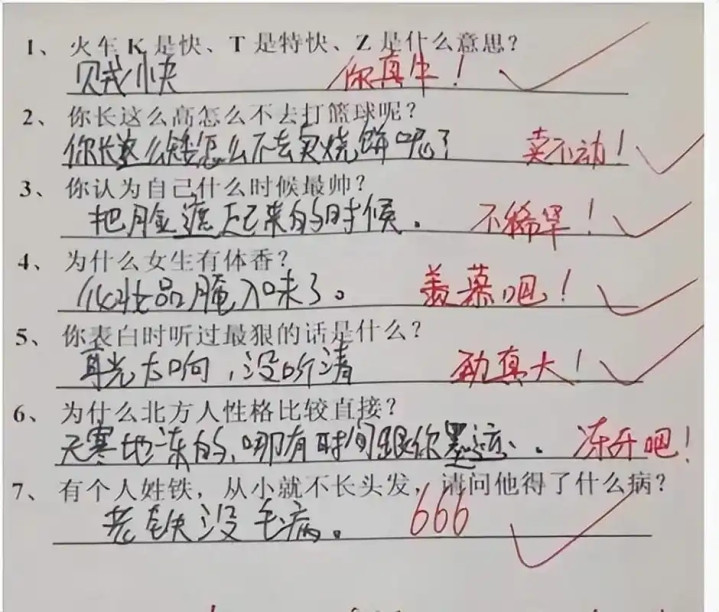 1、火车 K 是快、T 是特快、Z 是什么意思?
贼快 你真牛!
2、你长这么高怎么不去打篮球呢?
你长这么矮怎么不去卖烧饼呢? 卖不动!
3、你认为自己什么时候最帅?
把脸遮起来的时候。 不稀罕!
4、为什么女生有体香?
化妆品腌入味了。 羡慕吧!
5、你表白时听过最狠的话是什么?
耳光太响,没听清 劲真大!
6、为什么北方人性格比较直接?
天寒地冻的,哪有时间跟你墨迹。 冻歼吧!
7、有个人姓铁,从小就不长头发,请问他得了什么病?
老铁没毛病。 666